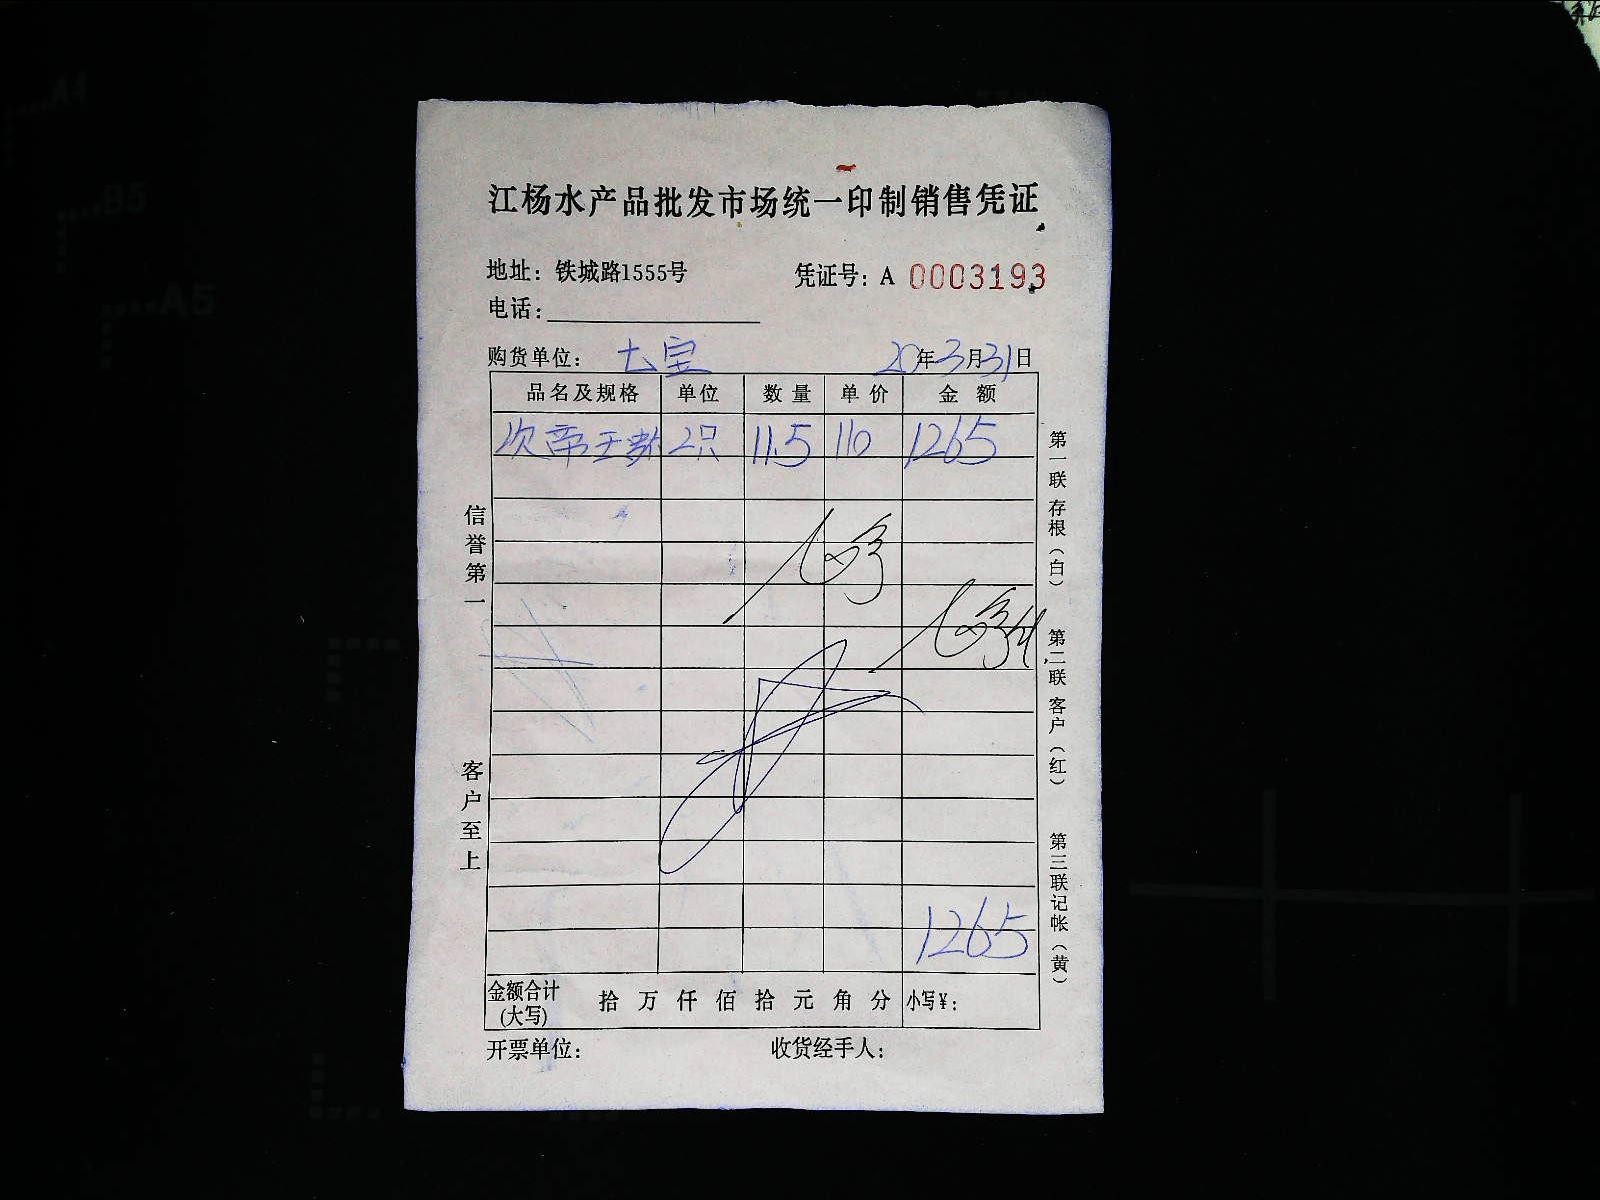 江杨水产品批发市场统一印制销售凭证
地址：铁城路1555号 凭证号：A 0003193
电话：
购货单位：七宝 20年3月31日
品名及规格 单位 数量 单价 金额
次帝王蟹 2只 11.5 110 1265
1265
金额合计(大写) 拾 万 仟 佰 拾 元 角 分 小写¥：
开票单位： 收货经手人：
信誉第一
客户至上
第一联 存根（白）
第二联 客户（红）
第三联 记帐（黄）
A4
B5
A5